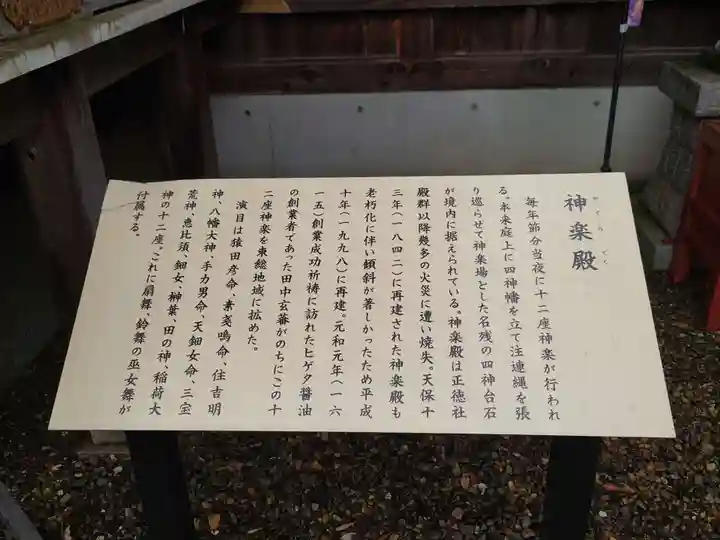 神楽殿
かぐらでん
毎年節分当夜に十二座神楽が行われ
る。本来庭上に四神幡を立て注連縄を張
り巡らせて神楽場とした名残の四神台石
が境内に据えられている。神楽殿は正徳社
殿群以降幾多の火災に遭い焼失。天保十
三年(一八四二)に再建された神楽殿も
老朽化に伴い傾斜が著しかったため平成
十年(一九九八)に再建。元和元年(一六
一五)創業成功祈祷に訪れたヒゲタ醤油
の創業者であった田中玄蕃がのちにこの十
二座神楽を東総地域に拡めた。
演目は猿田彦命、素戔嗚命、住吉明
神、八幡大神、手力男命、天鈿女命、三宝
荒神、恵比須、鈿女、榊葉、田の神、稲荷大
神の十二座。これに扇舞、鈴舞の巫女舞が
付属する。